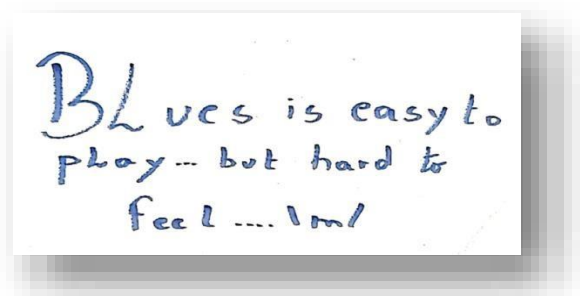 BLues is easy to
play... but hard to
feel .... \m/